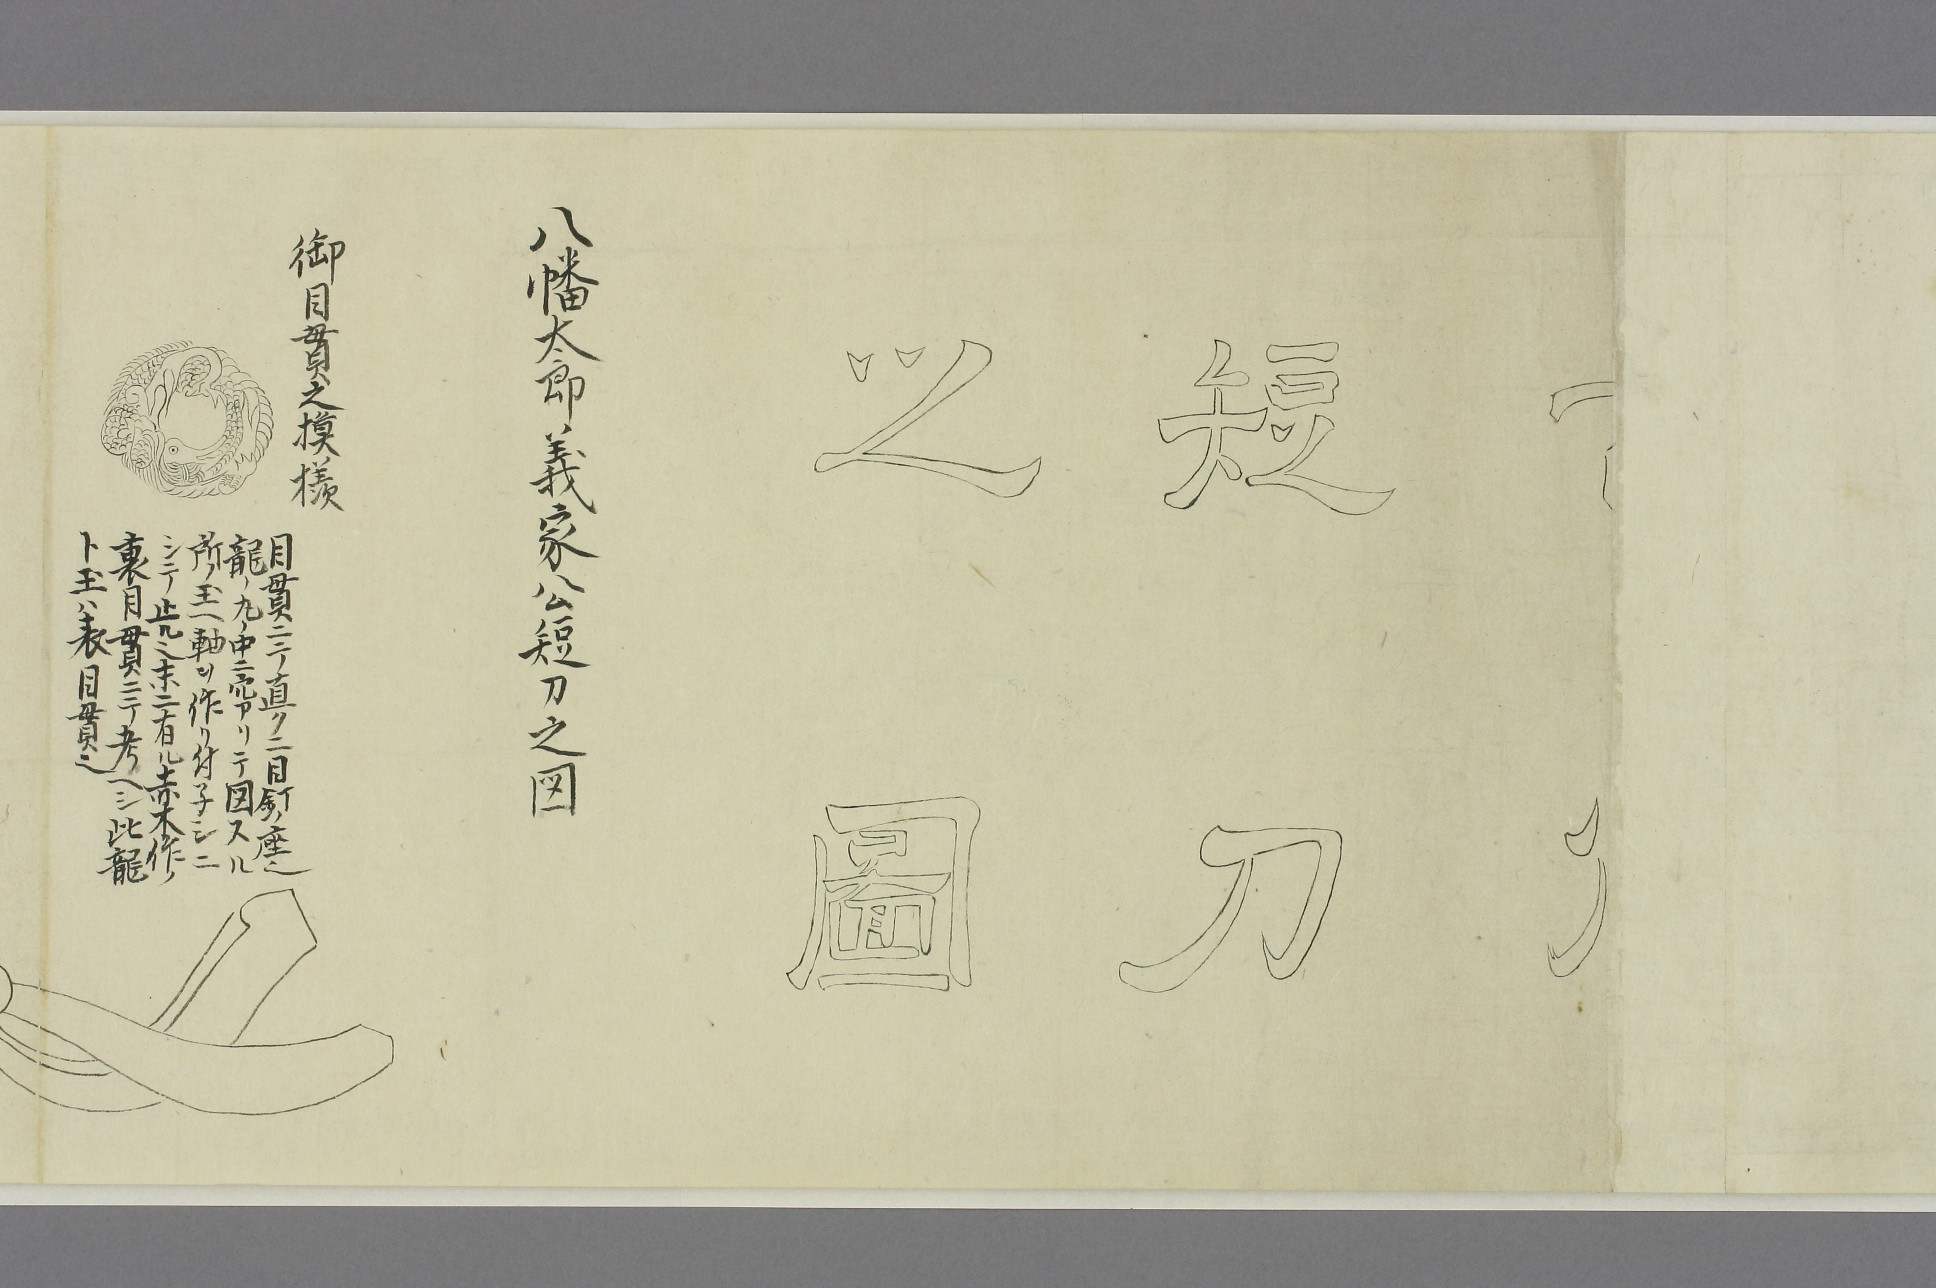 短刀
之圖
八幡太郎義家公短刀之図
御目貫之摸様
目貫ニテ直クニ目釘ノ座也
龍ノ丸ノ中ニ穴アリテ図スル
所ノ玉ヘ軸ヲ作リ付ケテシニ
シテ止ル也末ニ有ル赤木作ノ
裏目貫ニテ考ヘシ此龍
ト玉ハ表目貫也